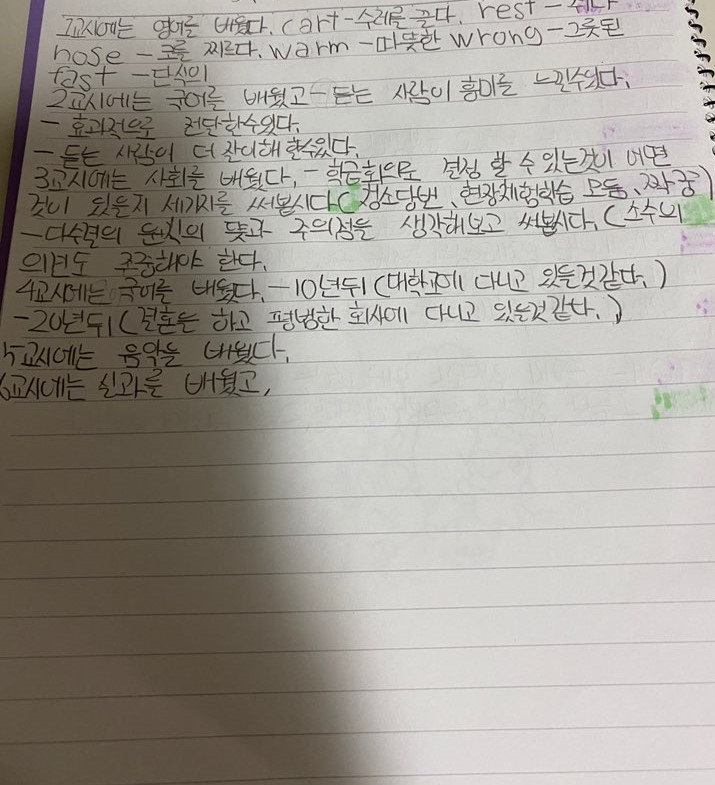 1교시에는 영어를 배웠다. cart-수레를 끌다. rest-쉬다
nose-코를 찌르다. warm-따뜻한 wrong-그릇된
fast-단식의
2교시에는 국어를 배웠고-듣는 사람이 흥미를 느낄수있다.
-효과적으로 전달할수있다.
-듣는 사람이 더 잘이해 할수있다.
3교시에는 사회를 배웠다. -학급회의로 결정 할 수 있는것이 어떤
것이 있을지 세가지를 써봅시다(청소당번, 현장체험학습 모둠, 짝궁)
-다수결의 원칙의 뜻과 주의점을 생각해보고 써봅시다. (소수의
의견도 존중해야 한다.
4교시에는 국어를 배웠다. -10년뒤(대학교에 다니고 있을것같다.)
-20년뒤(결혼은 하고 평범한 회사에 다니고 있을것같다.)
5교시에는 음악을 배웠다.
6교시에는 실과를 배웠고,